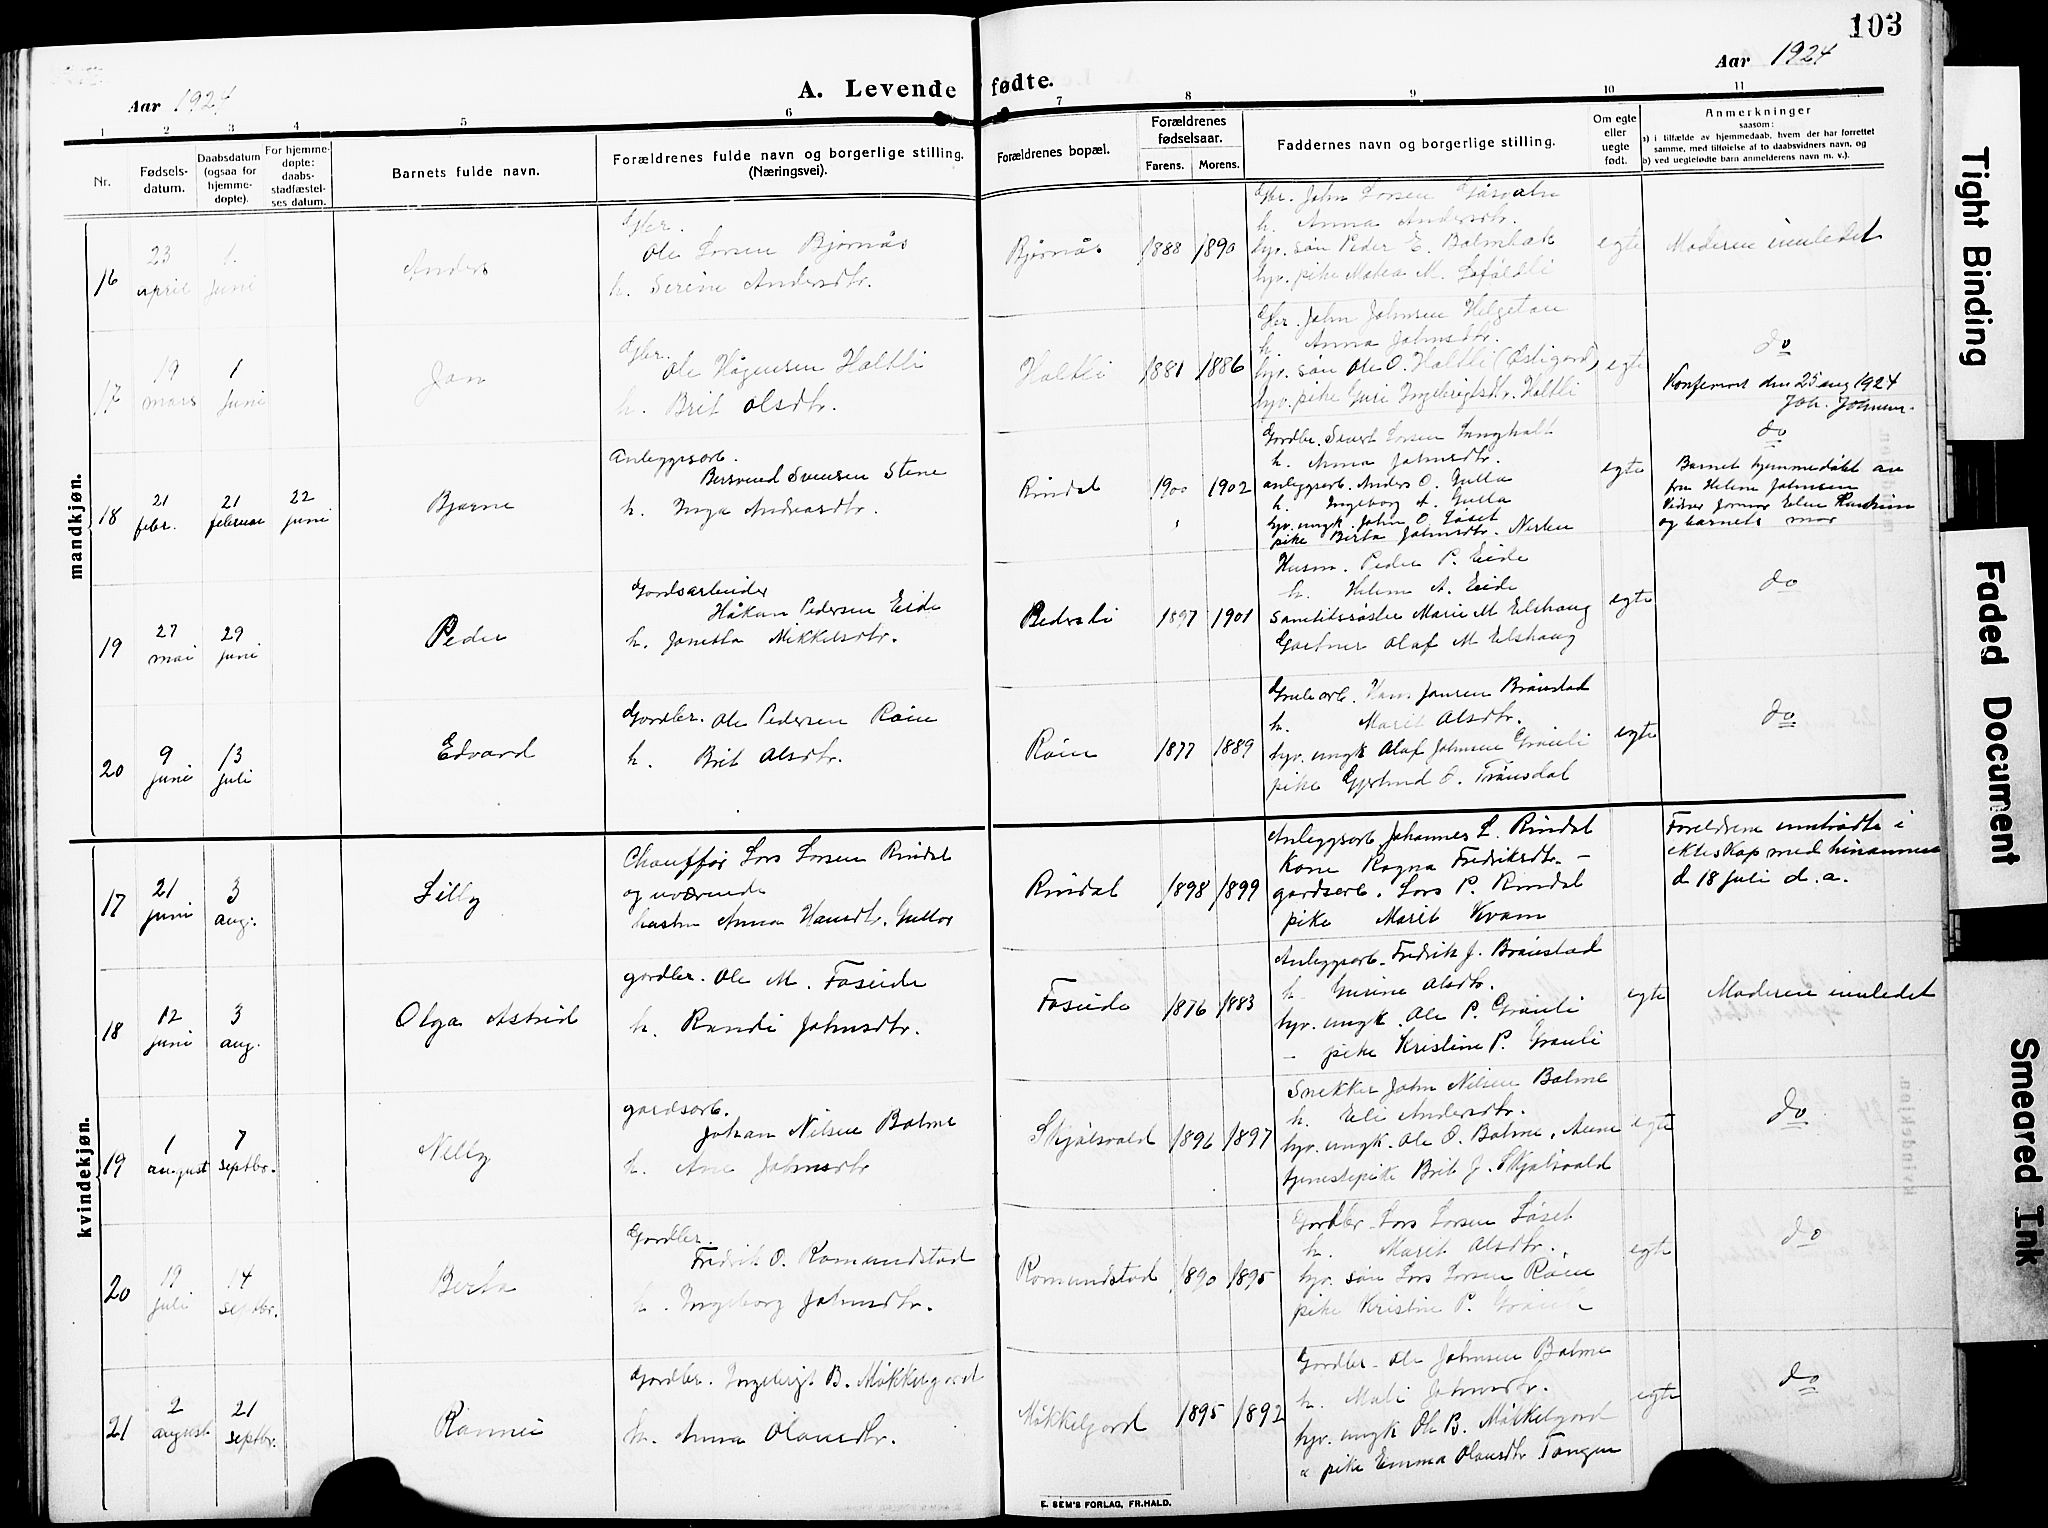 103
Aar 1924
Aar 1924
A. Levende fødte.
1 2 3 4 5 6 7 8 9 10 11
Nr.
Fødsels-
datum.
Daabsdatum
(ogsaa for
hjemme-
døpte).
For hjemme-
døpte:
daabs-
stadfæstel-
ses datum.
Barnets fulde navn.
Forældrenes fulde navn og borgerlige stilling.
(Næringsvei).
Forældrenes bopæl.
Forældrenes
fødselsaar.
Farens. Morens.
Faddernes navn og borgerlige stilling.
Om egte
eller
uegte
født.
Anmerkninger
saasom:
a) i tilfælde av hjemmedaab, hvem der har forrettet
samme, med tilføielse af to daabsvidners navn, og
b) ved uegtefødte barn anmelderens navn m. v.).
mandkjøn.
16
23
april
1.
juni
Anders
Gbr.
Ole Larsen Bjørnås
h. Serine Andersdtr.
Bjørnås
1888 1890
Gbr. John Larsen
h. Anna Andersdtr.
hjv. søn Peder E.
hjv. pike
egte
Moderen innledet
17
19
mars
1
juni
Jon
Gbr.
Ole Hågensen Haltli
h. Brit Olsdtr.
Haltli
1881 1886
Gbr. John Johnsen Helgetun
h. Anna Johnsdtr.
hjv. søn Ole O. Haltli (Østigard)
hjv. pike Guri Ingebrigtsdtr. Haltli
egte
do
Konferert den 25 aug 1924
Joh. Johnsen.
18
21
febr.
21
februar
22
juni
Bjarne
Anleggsarb.
Bersvend Svensen Stene
h. Inga Andreasdtr.
Rindal
1900 1902
Gardbr. Sivert Larsen
h. Anna Johnsdtr.
anleggsarb. Anders O. Gulla
h. Ingeborg A. Gulla
hjv. ungk. John O. Løset
pike Berta Johnsdtr. Nerlen
egte
do
Barnet hjemmedøbt av
fru Helene Johnsen
og barnets mor
19
27
mai
29
juni
Peder
Gardsarbeider
Håkon Pedersen Eide
h. Jonetta Mikkelsdtr.
1897 1901
Husm. Peder P. Eide
h. Helene A. Eide
Marie M Elshaug
Gartner Olaf M Elshaug
egte
do
20
9
juni
13
juli
Edvard
Gardbr. Ole Pedersen Røen
h. Brit Olsdtr.
Røen
1877 1889
Hans Jonsen Brønstad
h. Marit Olsdtr.
hjv. ungk Olaf Johnsen Grønli
pike Gjertrud O. Trønsdal
egte
do
kvindekjøn.
17
21
juni
3
aug.
Lilly
Chauffør Lars Larsen Rindal
og nværende
hustru Anna Hansdtr.
Rindal
1898 1899
Anleggsarb. Johannes L. Rindal
Kone Ragna Fredriksdtr. –
gardsarb. Lars P. Rindal
pike Marit Kvam
Foreldrene inntrådte i
ekteskap med hinannen
d 18 juli d. a.
18
12
juni
3
aug.
Olga Astrid
gardbr. Ole M. Faseide
h. Randi Johnsdtr.
Faseide
1876 1883
Anleggsarb. Fredrik J. Brønstad
h. Gurine Olsdtr.
hjv. ungk. Ole P. Grønli
– pike Kristine P. Grønli
egte
Moderen innledet
19
1
august
7
septbr.
Nelly
gardsarb.
Johan Nilsen Bolme
h. Ane Johnsdtr
Skjølsvold
1896 1897
Snekker John Nilsen Bolme
h. Eli Andersdtr.
hjv. ungk. Ole O. Bolme,
tjenestepike Brit J. Skjølsvold
egte
do
20
19
juli
14
septbr.
Berta
Gardbr.
Fredrik O. Romundstad
h. Ingeborg Johnsdtr.
Romundstad
1890 1895
Gardbr. Lars Larsen Løset
h. Marit Olsdtr.
hjv. søn Lars Larsen Røen
pike Kristine P. Grønli
egte
do
21
2
august
21
septbr.
Rannei
Gardbr. Ingebrigt B. Møkkelgard
h. Anna Olausdtr.
Møkkelgard
1895 1892
Gardbr. Ole Johnsen Bolme
h. Mali Johnsdtr.
hjv. ungk Ole B. Møkkelgard
" pike Emma Olausdtr Tangen
egte
do
E. SEM'S FORLAG, FR.HALD.
Tight Binding
Faded Document
Smeared Ink